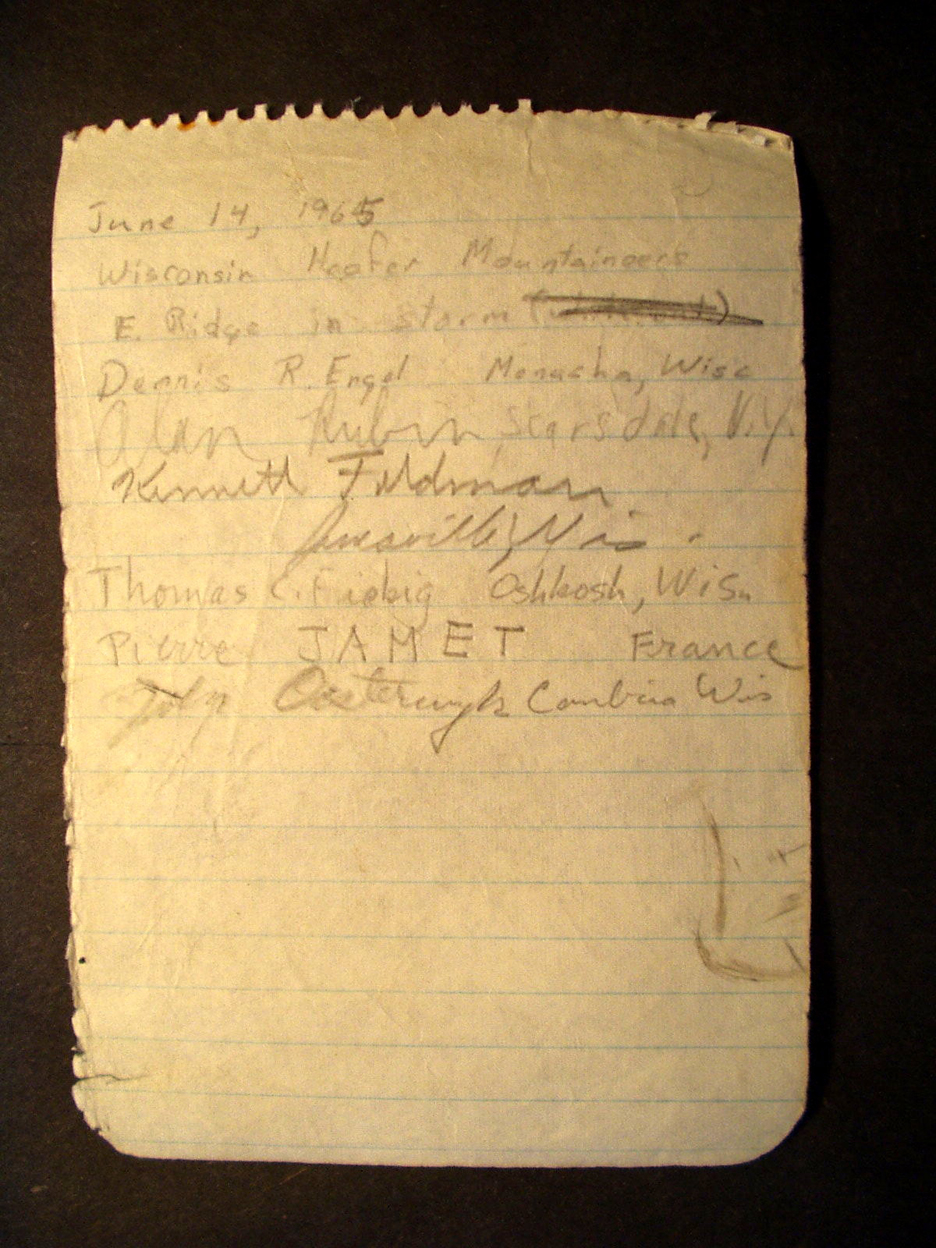 June 14, 1965
Wisconsin Hoofer Mountaineers
E. Ridge in storm
Dennis R. Engel Menasha, Wisc
Alan Rubin, Scarsdale, N.Y.
Kenneth Feldman
Janesville, Wis.
Thomas C. Fiebig Oshkosh, Wis.
Pierre JAMET France
John Oosterwyk Cambria Wis